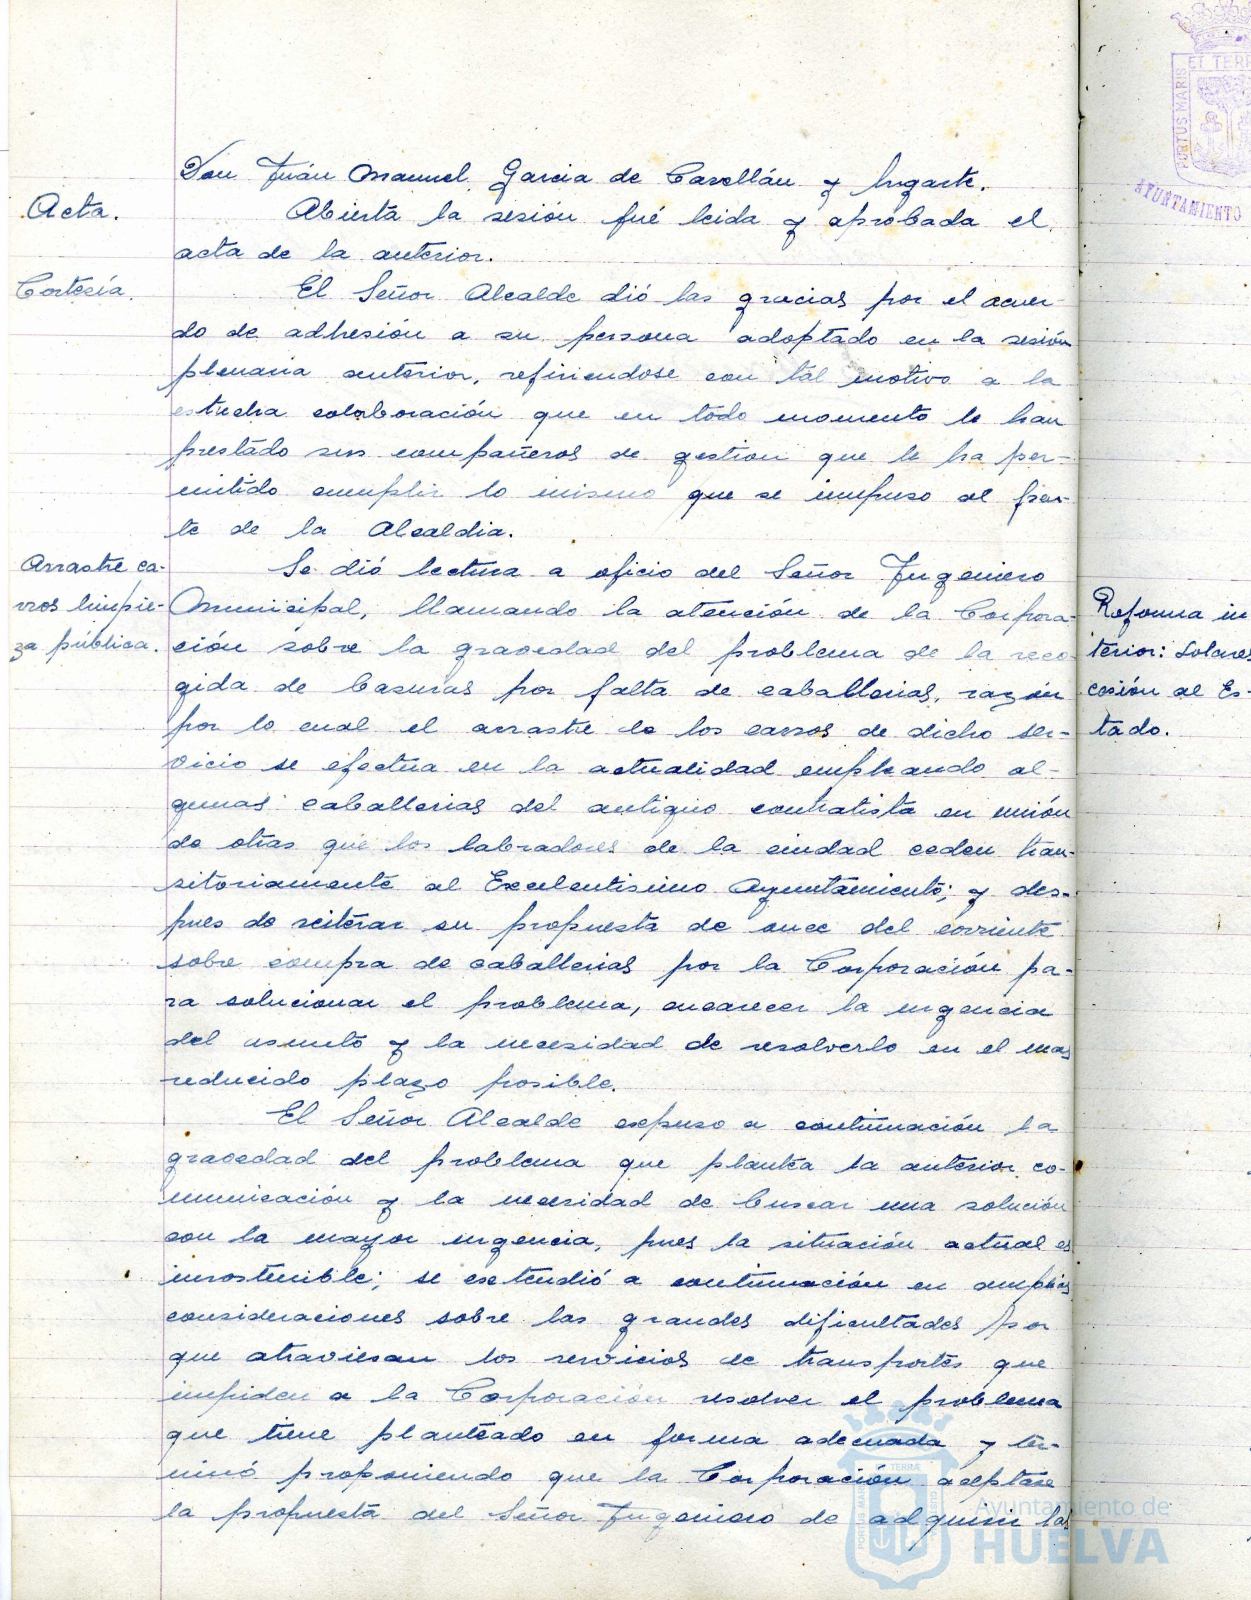 Don Juán Manuel Garcia de Casellán y Iugarte.
Acta.
Abierta la sesión fué leida y aprobada el
acta de la anterior.
Cortesía.
El Señor Alcalde dió las gracias por el acuer-
do de adhesión a su persona adoptado en la sesión
plenaria anterior, refiriendose con tal motivo a la
estrecha colaboración que en todo momento le han
prestado sus compañeros de gestion que le ha per-
mitido cumplir lo mismo que se impuso al fren-
te de la Alcaldia.
Arrastre ca-
rros limpie-
za pública.
Se dió lectura a oficio del Señor Ingeniero
Municipal, llamando la atención de la Corpora-
ción sobre la gravedad del problema de la reco-
gida de basuras por falta de caballerias, razón
por lo cual el arrastre de los carros de dicho ser-
vicio se efectua en la actualidad empleando al-
gunas caballerias del antiguo contratista en unión
de otras que los labradores de la ciudad ceden tran-
sitoriamente al Excelentisimo Ayuntamiento; y des-
pues de reiterar su propuesta de once del corriente
sobre compra de caballerias por la Corporación pa-
ra solucionar el problema, encarecer la urgencia
del asunto y la necesidad de resolverlo en el mas
reducido plazo posible.
El Señor Alcalde expuso a continuación la
gravedad del problema que plantea la anterior co-
municación y la necesidad de buscar una solución
con la mayor urgencia, pues la situación actual es
insostenible; se extendió a continuación en amplias
consideraciones sobre las grandes dificultades por
que atraviesan los servicios de transportes que
impiden a la Corporación resolver el problema
que tiene planteado en forma adecuada y ter-
minó proponiendo que la Corporación aceptase
la propuesta del Señor Ingeniero de adquirir las
Reforma in
terior: Solares
cesión al Es-
tado.
PORTUS MARIS ET TERR
AYUNTAMIENTO
Ayuntamiento de
HUELVA